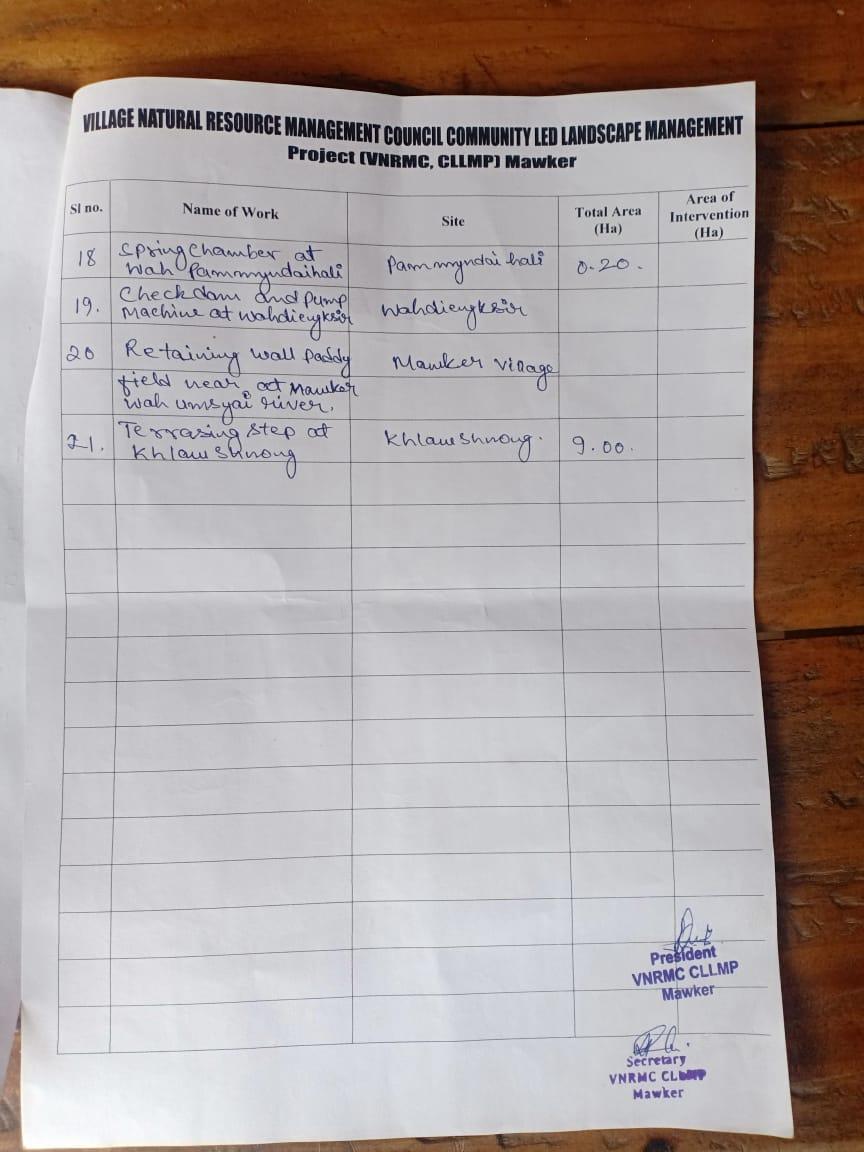 VILLAGE NATURAL RESOURCE MANAGEMENT COUNCIL COMMUNITY LED LANDSCAPE MANAGEMENT
Project (VNRMC, CLLMP) Mawker
Sl no. Name of Work Site Total Area (Ha) Area of Intervention (Ha)
18 Spring chamber at Pammyndaihali 0.20.
Wah Pammmyndaihali
19. Check dam and pump Wahdiengksir
Machine at Wahdiengksir
20 Retaining wall paddy Mawker village
field near at Mawker
wah umsyai river.
21. Terrasing step at Khlawshnong. 9.00.
Khlawshnong
President
VNRMC CLLMP
Mawker
Secretary
VNRMC CLLMP
Mawker